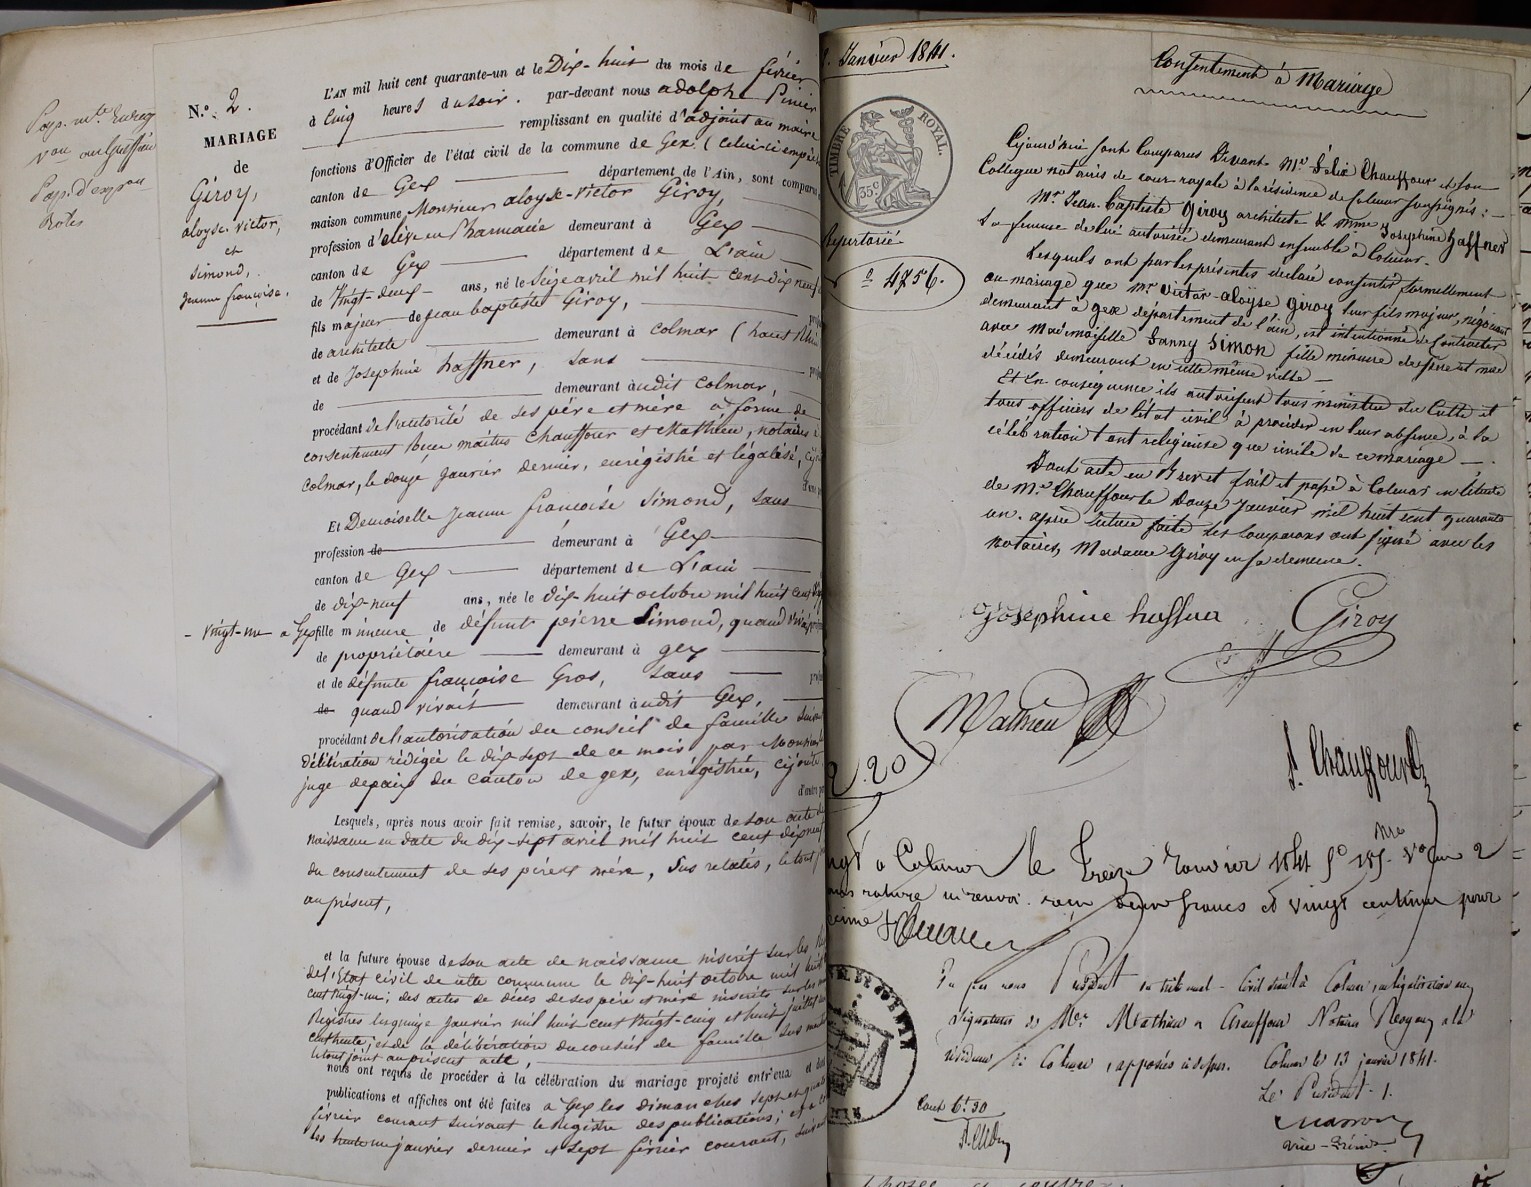 N.º 2.
MARIAGE
de
Giroy,
aloyse victor,
et
Simond,
jeanne françoise.
L'AN mil huit cent quarante-un et le Dix-huit du mois de février
à Cinq heures du soir. par-devant nous adolphe
remplissant en qualité d'adjoint au maire
fonctions d'Officier de l'état civil de la commune de Gex (Celui-ci
canton de Gex département de l'Ain, sont
maison commune Monsieur aloyse-victor Giroy,
profession d'élève en Pharmacie demeurant à Gex
canton de Gex département de L'ain
de Vingt-deux ans, né le Seize avril mil huit cent dix neuf
fils majeur de jean baptiste Giroy,
de architecte demeurant à Colmar (haut Rhin
et de Josephine haffner, sans
de demeurant à udit Colmar,
procédant de l'autorité de ses père et mère à forme de
consentement reçu maîtres Chauffour et Mathieu, notaires à
Colmar, le douze Janvier dernier, enrégistré et légalisé,
Et Demoiselle jeanne françoise Simond, Sans
profession de demeurant à Gex
canton de Gex département de L'ain
de dix-neuf ans, née le dix-huit octobre mil huit cent
- vingt-un à Gex fille mineure de défunt pierre Simond, quand vivait
de propriétaire demeurant à gex
et de défunte françoise Gros, sans
de quand vivait demeurant à udit Gex,
procédant de l'autorisation du conseil de famille
délibération rédigée le dix sept de ce mois par Monsieur
juge de paix du canton de gex, enrégistrée, cijointe,
Lesquels, après nous avoir fait remise, savoir, le futur époux de son acte de
naissance en date du dix-sept avril mil huit cent dix neuf
du consentement de ses père et mère, sus relatés, le tout
au présent,
et la future épouse de son acte de naissance inscrit sur les
de l'Etat civil de cette commune le dix-huit octobre mil huit
cent vingt-un; des actes de décès de ses père et mère inscrits sur les
Registres les quinze janvier mil huit cent vingt-cinq et huit juillet
cent trente; et de la délibération du conseil de famille sus
le tout joint au présent acte,
nous ont requis de procéder à la célébration du mariage projeté entr'eux
publications et affiches ont été faites à Gex les dimanches sept et
février courant suivant le Registre des publications;
les trente un janvier dernier et sept février courant,
Janvier 1841.
Consentement à Mariage
TIMBRE ROYAL.
35 c
Repertorié
4756.
Cejourd'hui sont Comparus Devant Me Félix Chauffour et son
Collegue notaires de cour royale à la résidence de Colmar soussignés:
Mr. Jean-Baptiste Giroy architecte & Mme Josephine Haffner
sa femme de lui autorisée demeurant ensemble à Colmar.
Lesquels ont par les présentes déclaré consentir formellement
au mariage que Mr Victor-aloyse Giroy leur fils majeur, négociant
demeurant à gex département de l'ain, est intentionné de Contracter
avec Mademoiselle Fanny Simon fille mineure des père et mère
décédés demeurant en cette même ville —
Et En conséquence ils autorisent tous ministres du Culte et
tous officiers de l'état civil à procéder en leur absence, à la
célébration tant religieuse que civile de ce mariage —
Dont acte en Brevet fait et passé à Colmar en l'étude
de Me Chauffour le Douze Janvier mil huit cent quarante
un. après lecture faite les Comparans ont signé avec les
notaires, Madame Giroy en sa demeure.
Josephine haffner Giroy
Mathieu
F. Chauffour
2.20
à Colmar le Treize Janvier 1841
renvoi. reçu deux francs et vingt centimes pour
Vu par nous Président du tribunal Civil séant à Colmar, en légalisation des
signatures de Mes Mathieu & Chauffour Notaires Royaux à la
résidence de Colmar, apposées ci-dessus. Colmar le 13 janvier 1841.
Le Président